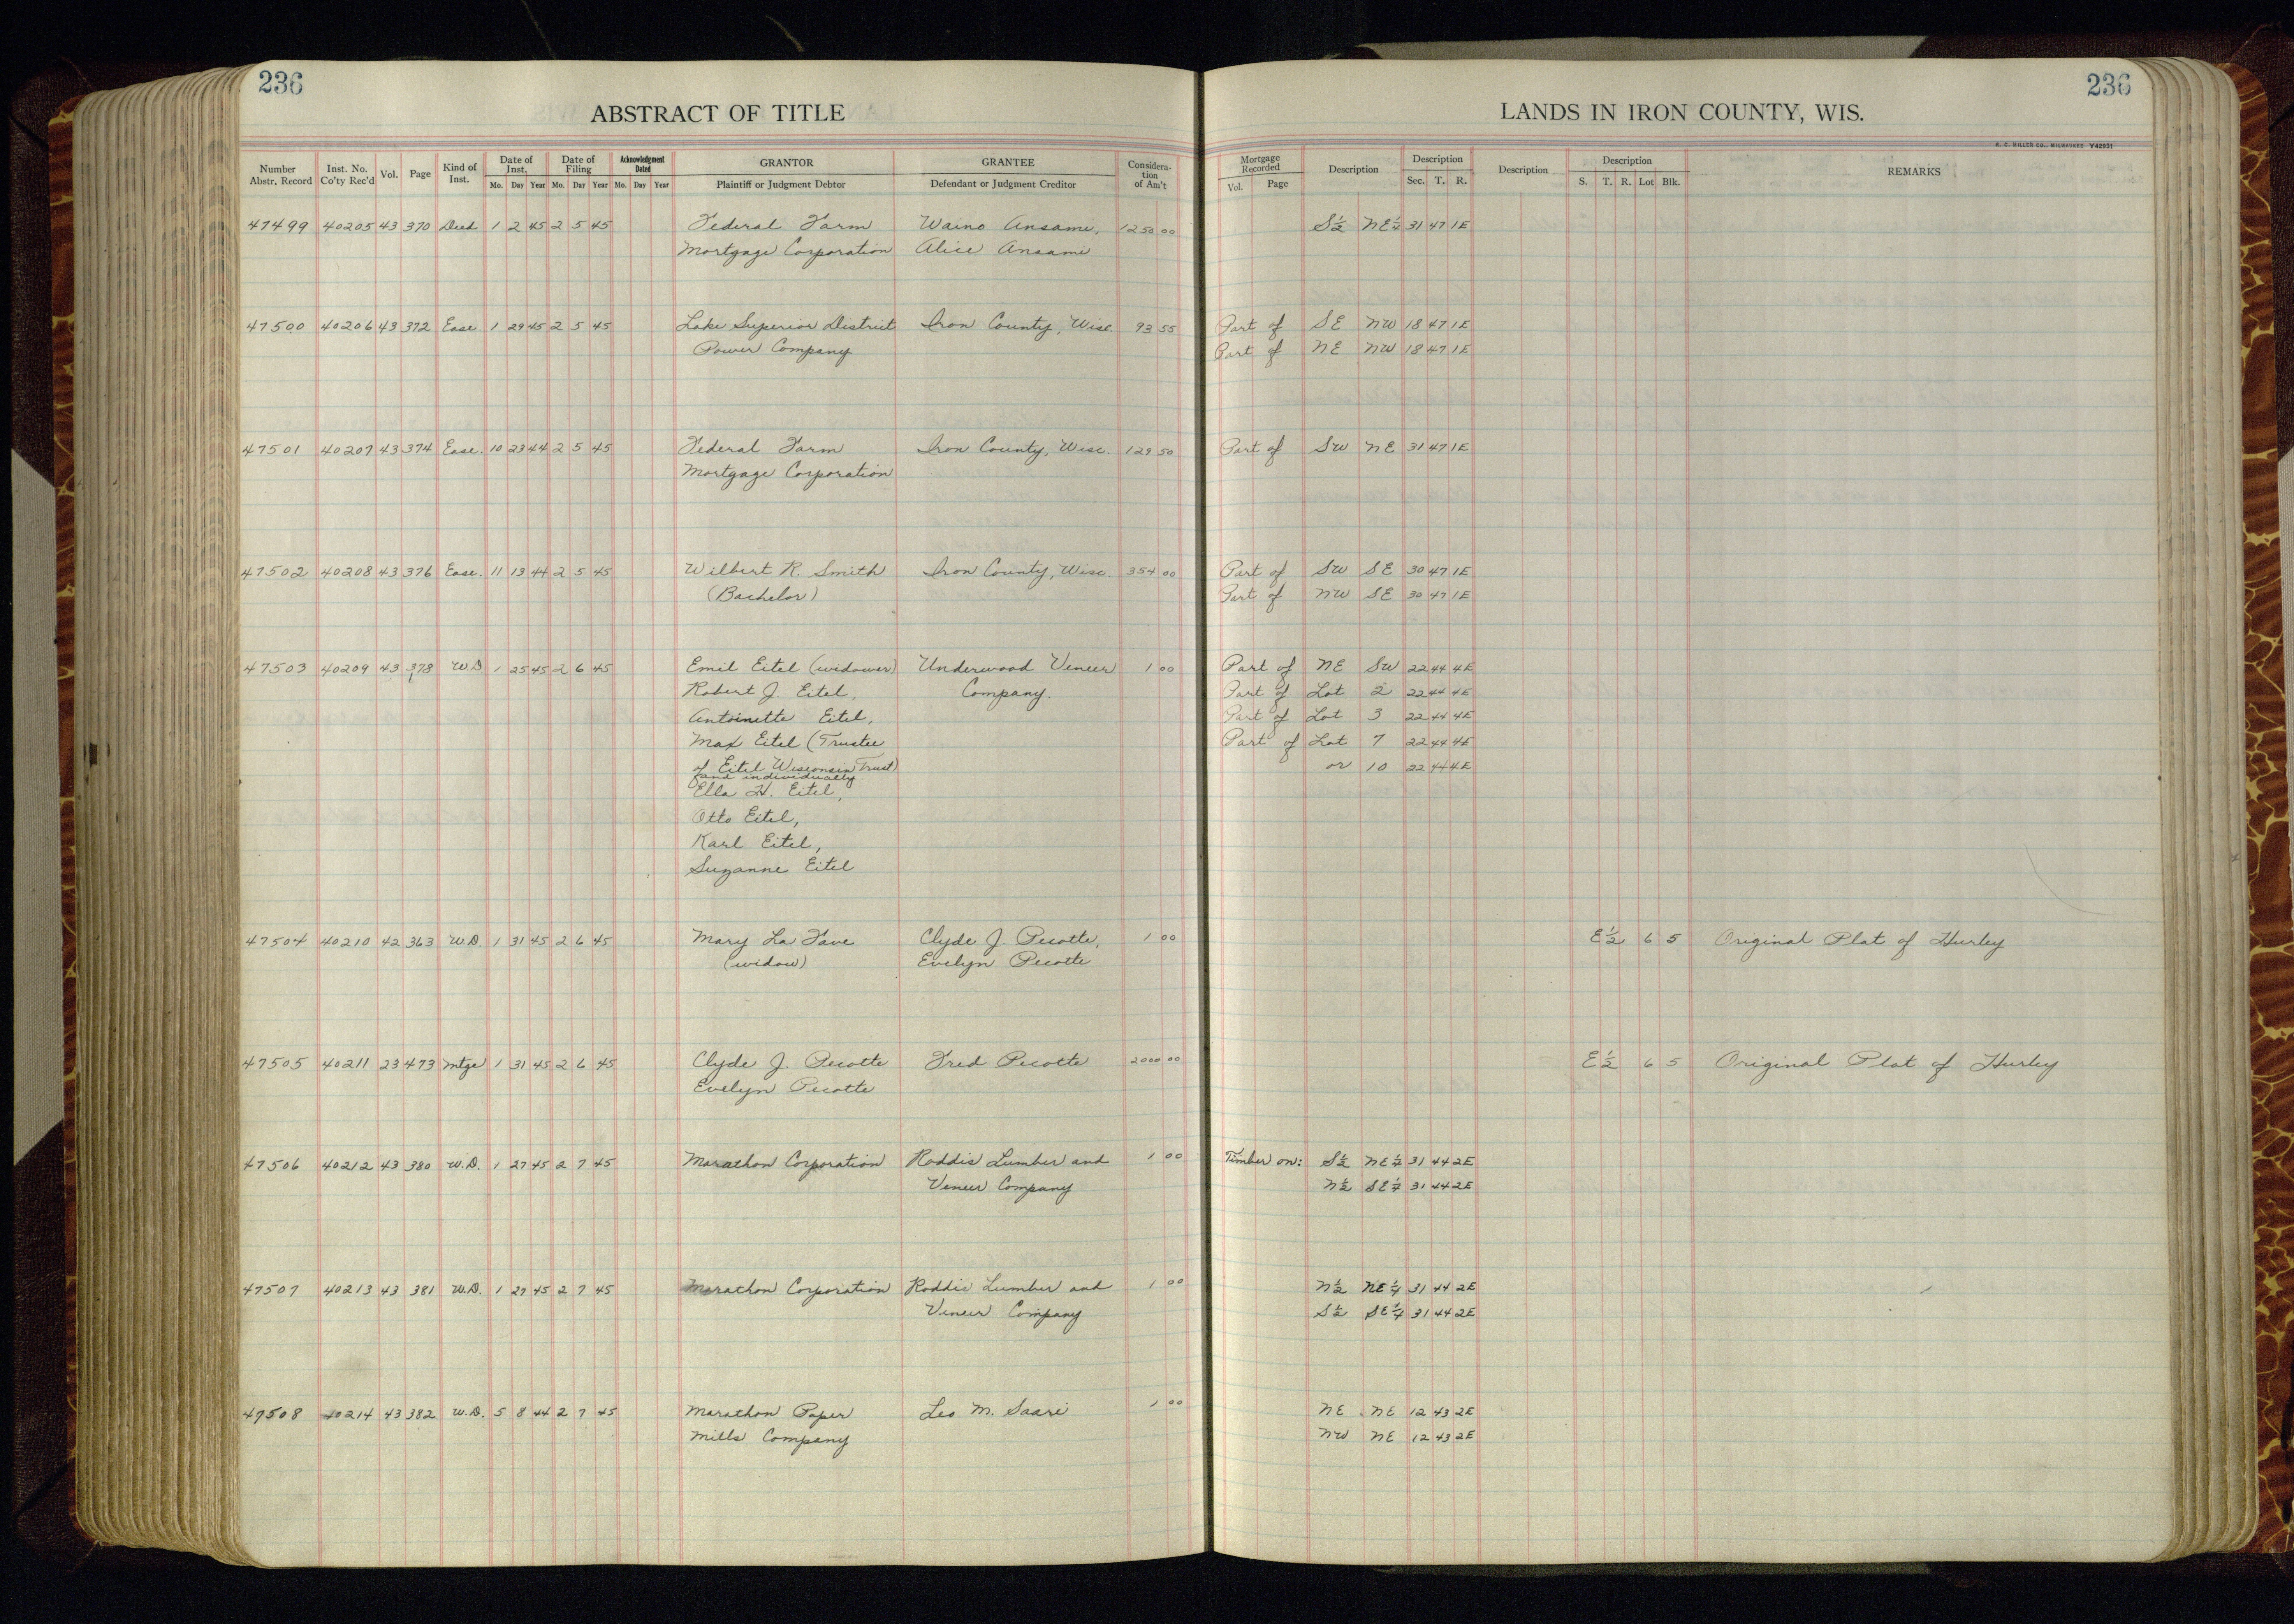 236
ABSTRACT OF TITLE
Number Abstr. Record Inst. No. Co'ty Rec'd Vol. Page Kind of Inst. Date of Inst. Mo. Day Year Date of Filing Mo. Day Year Acknowledgment Dated Mo. Day Year GRANTOR Plaintiff or Judgment Debtor GRANTEE Defendant or Judgment Creditor Considera- tion of Am't
236
LANDS IN IRON COUNTY, WIS.
H. C. MILLER CO., MILWAUKEE Y42931
Mortgage Recorded Vol. Page Description Description Sec. T. R. Description Description S. T. R. Lot Blk. REMARKS
47499 40205 43 370 Deed 1 2 45 2 5 45 Federal Farm Waino Ansami, 1250 00 S½ NE¼ 31 47 1E
Mortgage Corporation Alice Ansami
47500 40206 43 372 Ease. 1 29 45 2 5 45 Lake Superior District Iron County, Wisc. 93 55 Part of SE NW 18 47 1E
Power Company Part of NE NW 18 47 1E
47501 40207 43 374 Ease. 10 23 44 2 5 45 Federal Farm Iron County, Wisc. 129 50 Part of SW NE 31 47 1E
Mortgage Corporation
47502 40208 43 376 Ease. 11 13 44 2 5 45 Wilbert R. Smith Iron County, Wisc. 354 00 Part of SW SE 30 47 1E
(Bachelor) Part of NW SE 30 47 1E
47503 40209 43 378 W.D 1 25 45 2 6 45 Emil Eitel (widower) Underwood Veneer 1 00 Part of NE SW 22 44 4E
Robert J. Eitel, Company. Part of Lot 2 22 44 4E
Antoinette Eitel, Part of Lot 3 22 44 4E
Max Eitel (Trustee Part of Lot 7 22 44 4E
of Eitel Wisconsin Trust) or 10 22 44 4E
and individually
Ella H. Eitel,
Otto Eitel,
Karl Eitel,
Suzanne Eitel
47504 40210 42 363 W.D. 1 31 45 2 6 45 Mary La Fave Clyde J. Pecotte, 1 00 E½ 6 5 Original Plat of Hurley
(widow) Evelyn Pecotte
47505 40211 23 473 Mtge 1 31 45 2 6 45 Clyde J. Pecotte Fred Pecotte 2000 00 E½ 6 5 Original Plat of Hurley
Evelyn Pecotte
47506 40212 43 380 W.D. 1 27 45 2 7 45 Marathon Corporation Roddis Lumber and 1 00 Timber on: S½ NE¼ 31 44 2E
Veneer Company N½ SE¼ 31 44 2E
47507 40213 43 381 W.D. 1 27 45 2 7 45 Marathon Corporation Roddis Lumber and 1 00 N½ NE¼ 31 44 2E
Veneer Company S½ SE¼ 31 44 2E
47508 40214 43 382 W.D. 5 8 44 2 7 45 Marathon Paper Leo M. Saari 1 00 NE NE 12 43 2E
Mills Company NW NE 12 43 2E